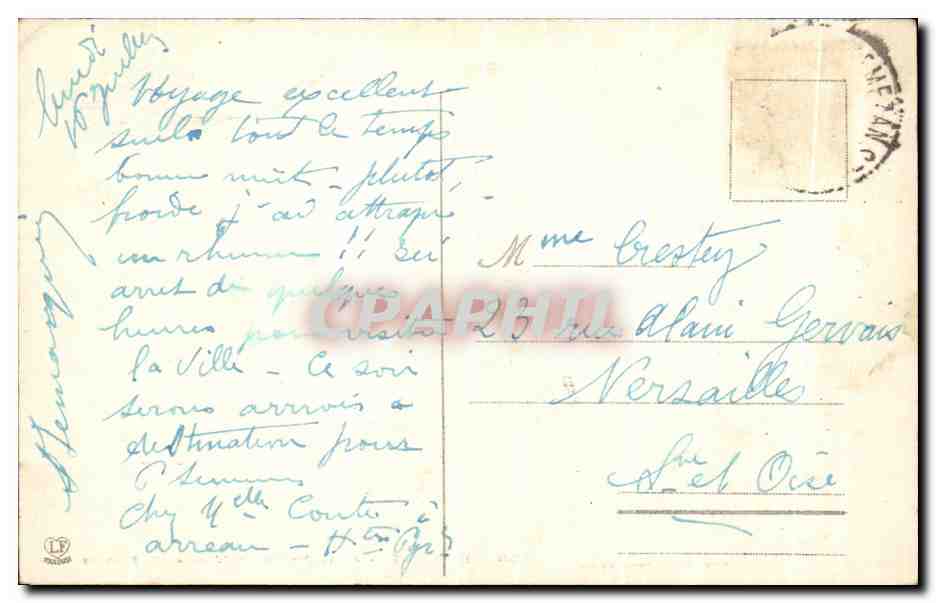 lundi
Voyage excellent
seule tout le temps
bonne nuit - plutot
froide j'ai attrapé
un rhume !! ici
arret de quelques
heures pour visiter
la Ville - Ce soir
serons arrivés a
destination pour
chez Melle Conte à
arreau - Htes Pyr
Mme Crestey
23 rue Alain Gervais
Versailles
S. et Oise
CPAPHIL
LF